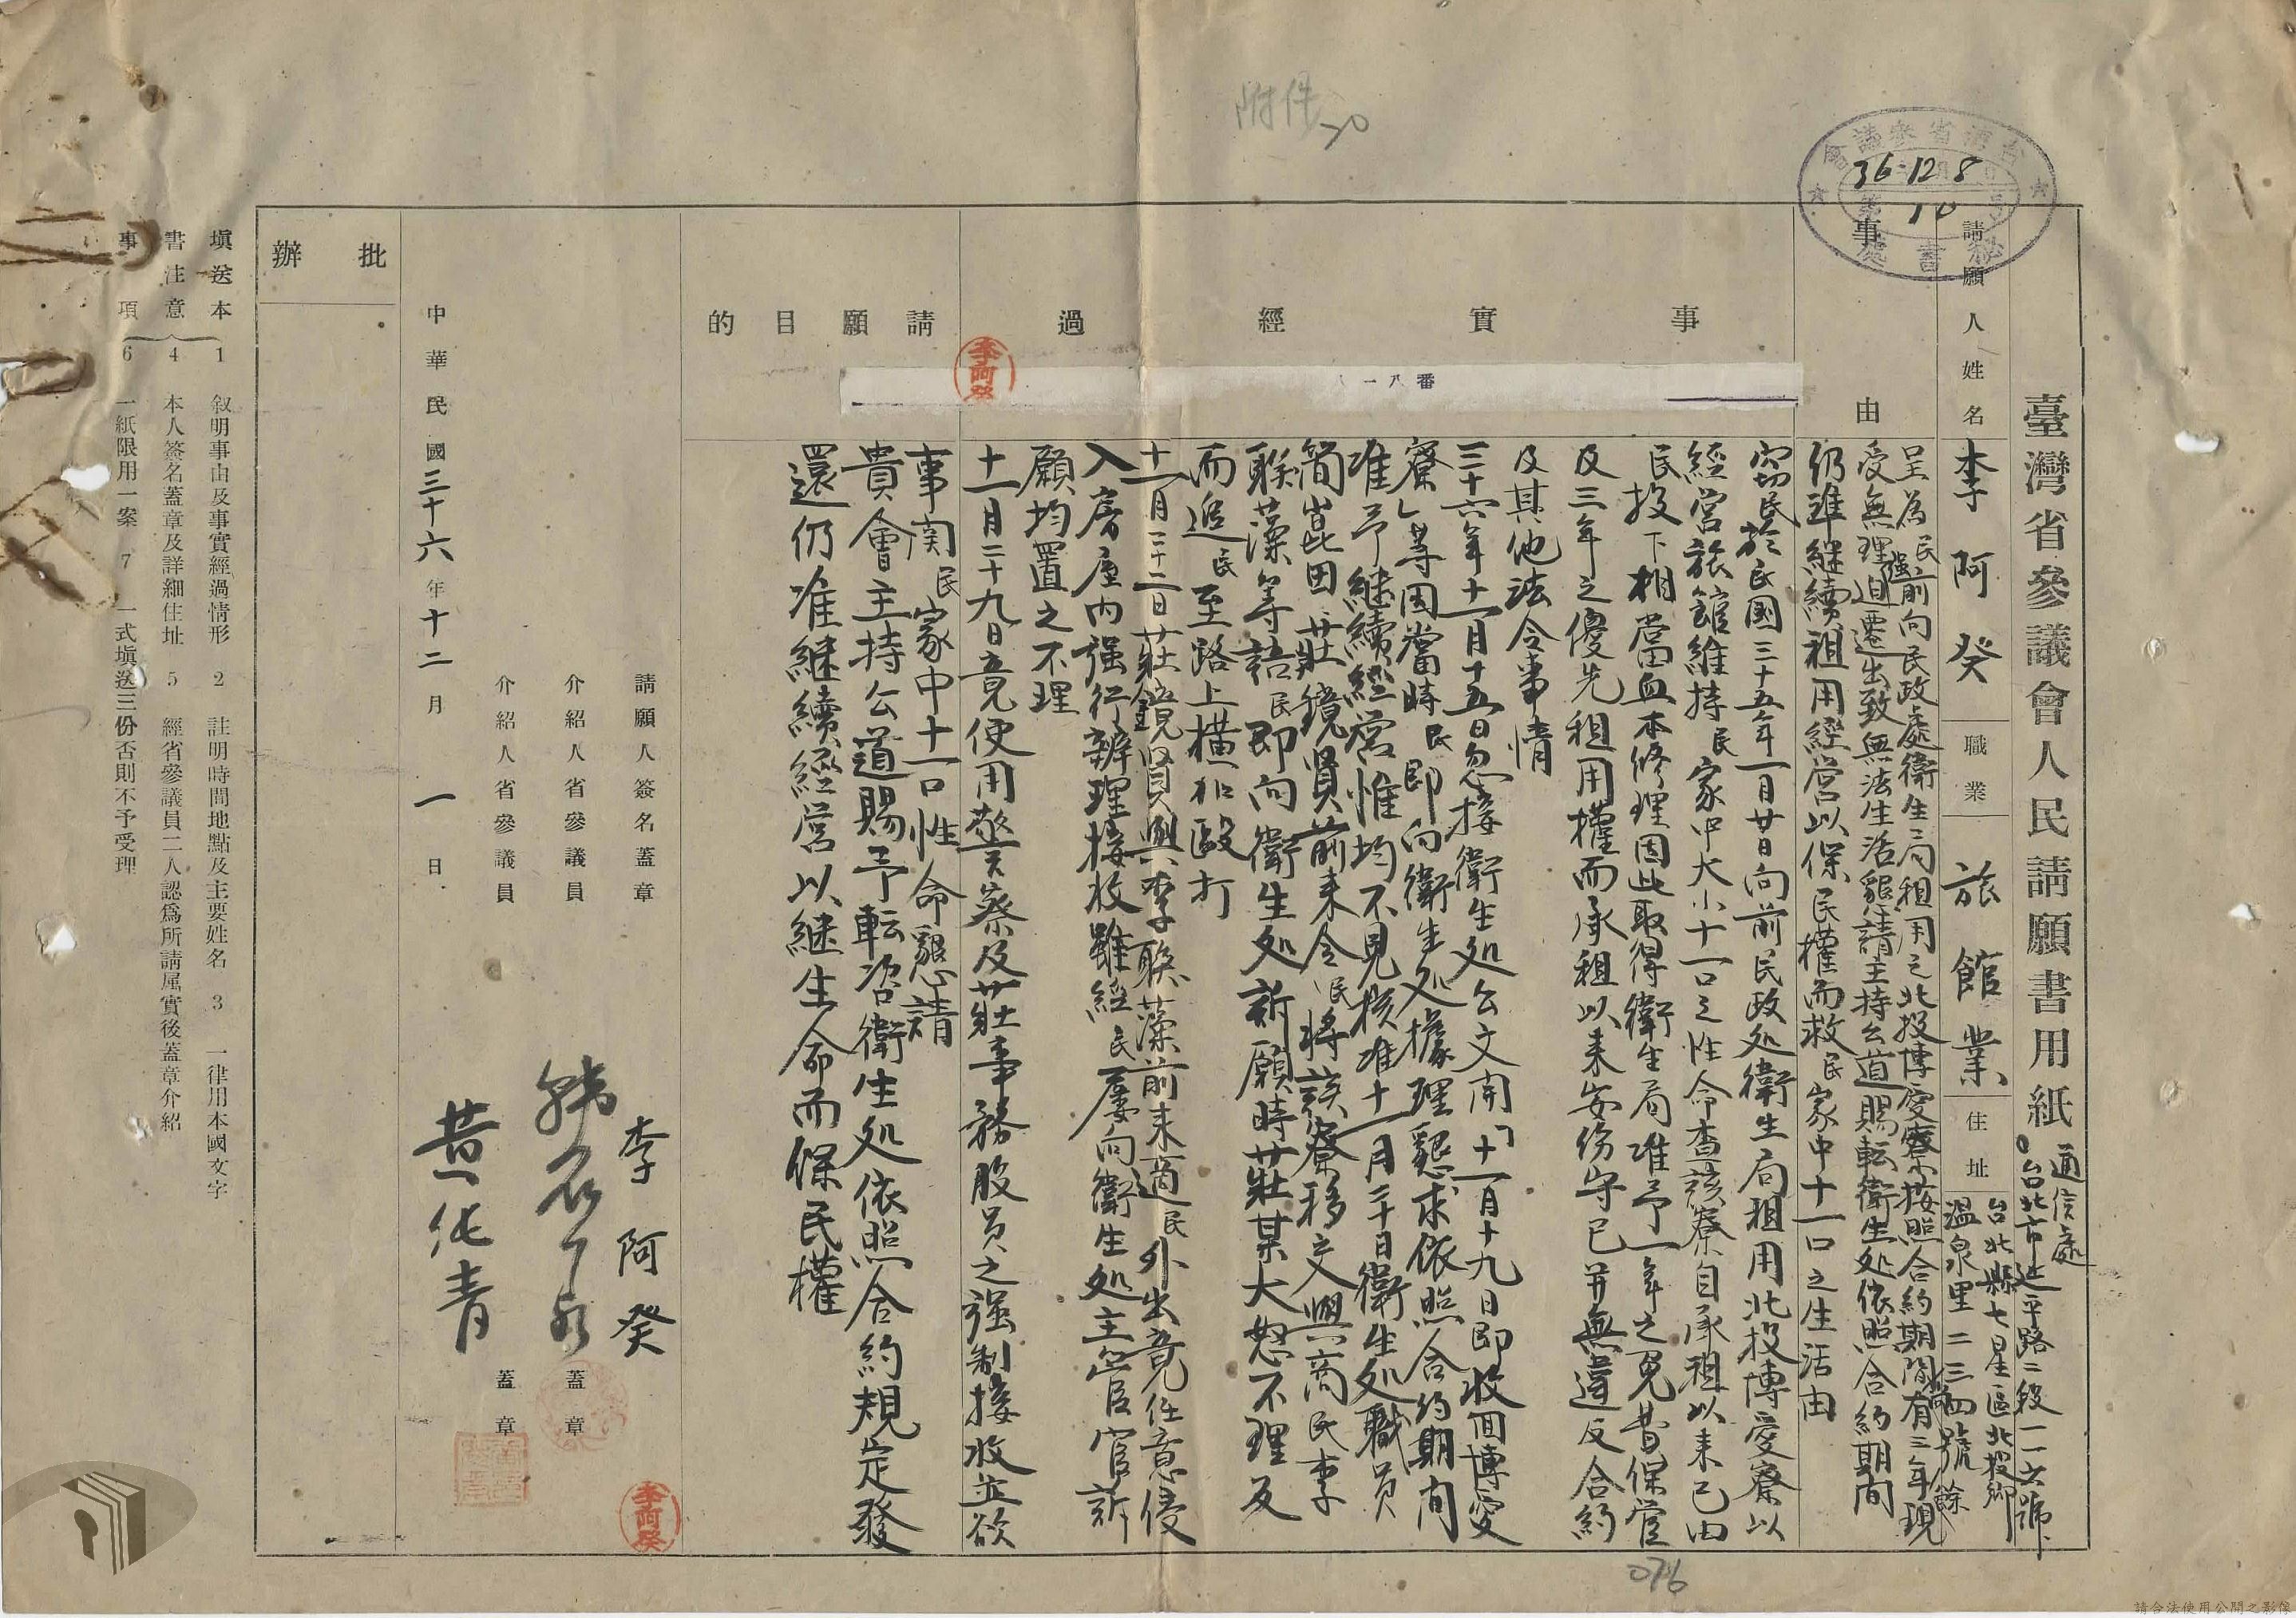 附件
36.12.8
臺灣省參議會人民請願書用紙
通信處
台北市延平路二段一一六號
請願人姓名 李阿癸 職業 旅館業 住址 台北縣七星區北投鄉
溫泉里二三四號
事由
呈為民前向民政處衛生局租用之北投博愛寮按照合約期間尚有三年餘現
受無理強迫遷出致無法生活懇請主持公道賜轉衛生処依照合約期間
仍準継續租用經営以保民權而救民家中十一口之生活由
事實經過
竊民於民國三十五年一月廿日向前民政処衛生局租用北投博愛寮以
經営旅館維持民家中大小十一口之性命查該寮自承租以来已由
民投下相當血本修理因此取得衛生局准予一年之免費保管
及三年之優先租用權而承租以来安份守己并無違反合約
及其他法令事情
三十六年十一月十五日忽接衛生処公文開「十一月十九日即收回博愛
寮」等因當時民即向衛生処據理懇求依照合約期間
准予継續經営惟均不見核准十一月二十日衛生処職員
簡崑田莊鏡賢前来令民將該寮移交與商民李
聯藻等語民即向衛生処訴願時莊某大怒不理反
而追民至路上橫加毆打
十一月二十二日莊鏡賢與李聯藻前来適民外出竟任意侵
入房屋内強行辦理接收雖經民屢向衛生処主管官訴
願均置之不理
十一月二十九日竟使用警察及莊事務股員之强制接收並欲
請願目的
事関民家中十一口性命懇請
貴會主持公道賜予転咨衛生処依照合約規定發
還仍准継續經営以継生命而保民權
八一八番
李阿癸
請願人簽名蓋章 李阿癸
介紹人省參議員 韓石泉 蓋章
介紹人省參議員 黃純青 蓋章
李阿癸
中華民國三十六年十二月一日
批辦
填送本書注意事項
1 叙明事由及事實經過情形 2 註明時間地點及主要姓名 3 一律用本國文字
4 本人簽名蓋章及詳細住址 5 經省參議員二人認爲所請属實後蓋章介紹
6 一紙限用一案 7 一式填送三份否則不予受理
076
請合法使用公開之影像